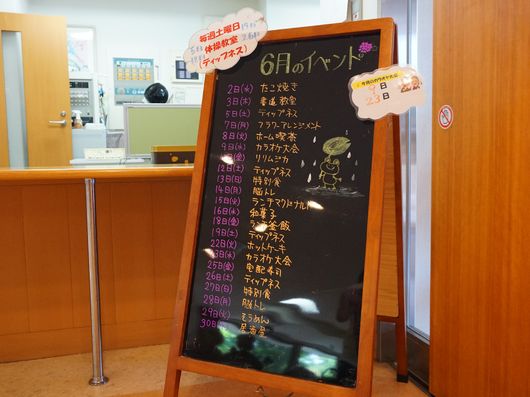 毎週土曜日
体操教室
(ティップネス)
6月のイベント
2日(水) たこ焼き
3日(木) 書道教室
5日(土) ティップネス
7日(月) フラワーアレンジメント
8日(火) ホーム喫茶
9日(水) カラオケ大会
日(金) リリムジカ
12日(土) ティップネス
13日(日) 特別食
14日(月) 脳トレ
15日(火) ランチマクドナルド
16日(水) 和菓子
18日(金) ランチ釜飯
19日(土) ティップネス
22日(火) ホットケーキ
日(水) カラオケ大会
25日(金) 宅配寿司
26日(土) ティップネス
27日(日) 特別食
28日(月) 脳トレ
29日(火) そうめん
30日 居酒屋
今月のカラオケ大会
9日
23日